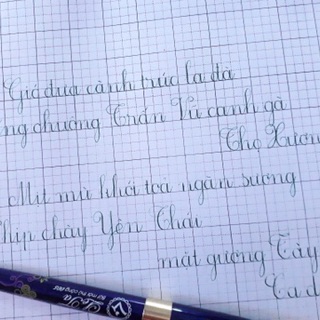 Gió đưa cành trúc la đà
ng chuông Trấn Vũ canh gà
Thọ Xươn
Mịt mù khói toả ngàn sương
Nhịp chày Yên Thái
mặt gương Tây
Ca d